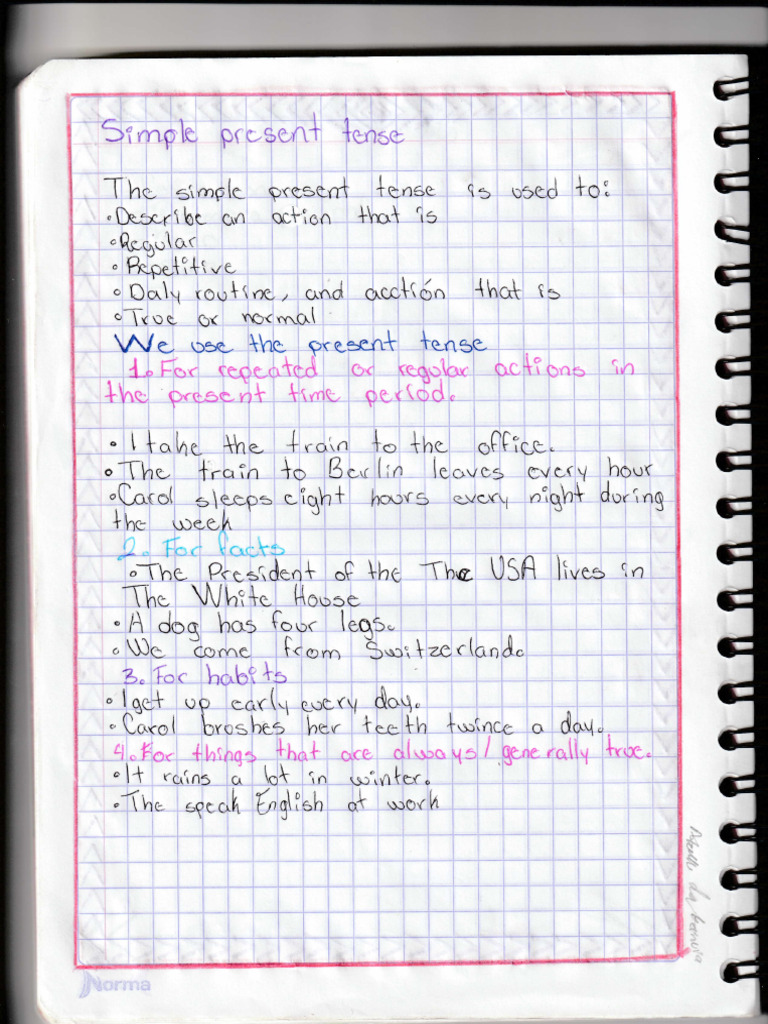 Simple present tense
The simple present tense is used to:
•Describe an action that is
•Regular
•Repetitive
•Daly routine, and acctión that is
•True or normal
We use the present tense
1.For repeated or regular actions in
the present time period.
•I take the train to the office.
•The train to Berlin leaves every hour
•Carol sleeps eight hours every night during
the week
2. For facts
•The President of the The USA lives in
The White House
•A dog has four legs.
•We come from Switzerland.
3. For habits
•I get up early every day.
•Carol broshes her teeth twince a day.
4.For things that are always/generally true.
•It rains a lot in winter.
•The speak English at work
Norma